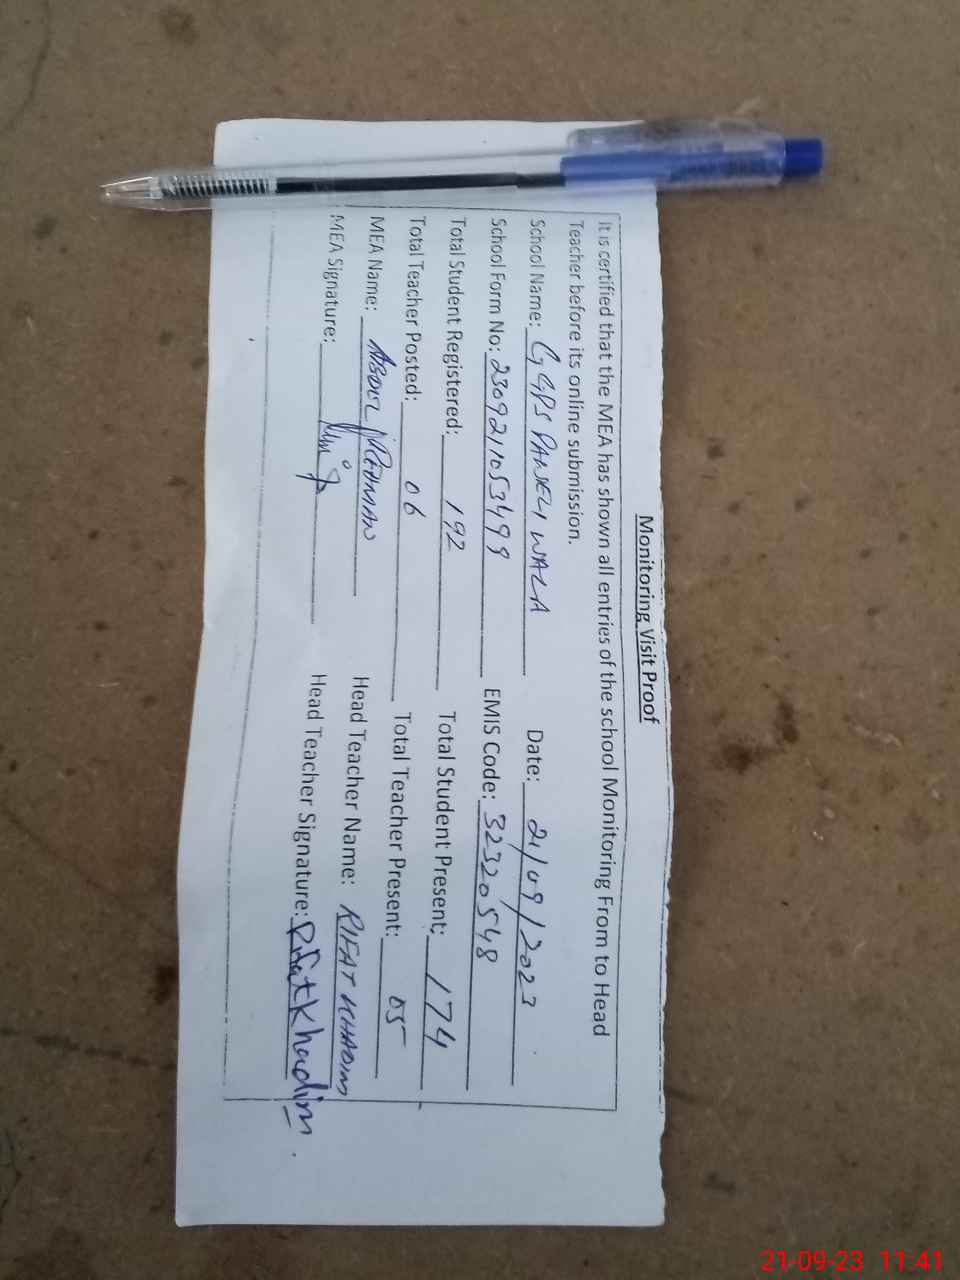 Monitoring Visit Proof
It is certified that the MEA has shown all entries of the school Monitoring From to Head
Teacher before its online submission.
School Name: GGPS PANJELI WALA Date: 21/09/2023
School Form No: 230921053499 EMIS Code: 32320548
Total Student Registered: 192 Total Student Present: 174
Total Teacher Posted: 06 Total Teacher Present: 05
MEA Name: ABDUL REHMAN Head Teacher Name: RIFAT KHADIM
MEA Signature: Head Teacher Signature: Rifat Khadim
21-09-23 11:41